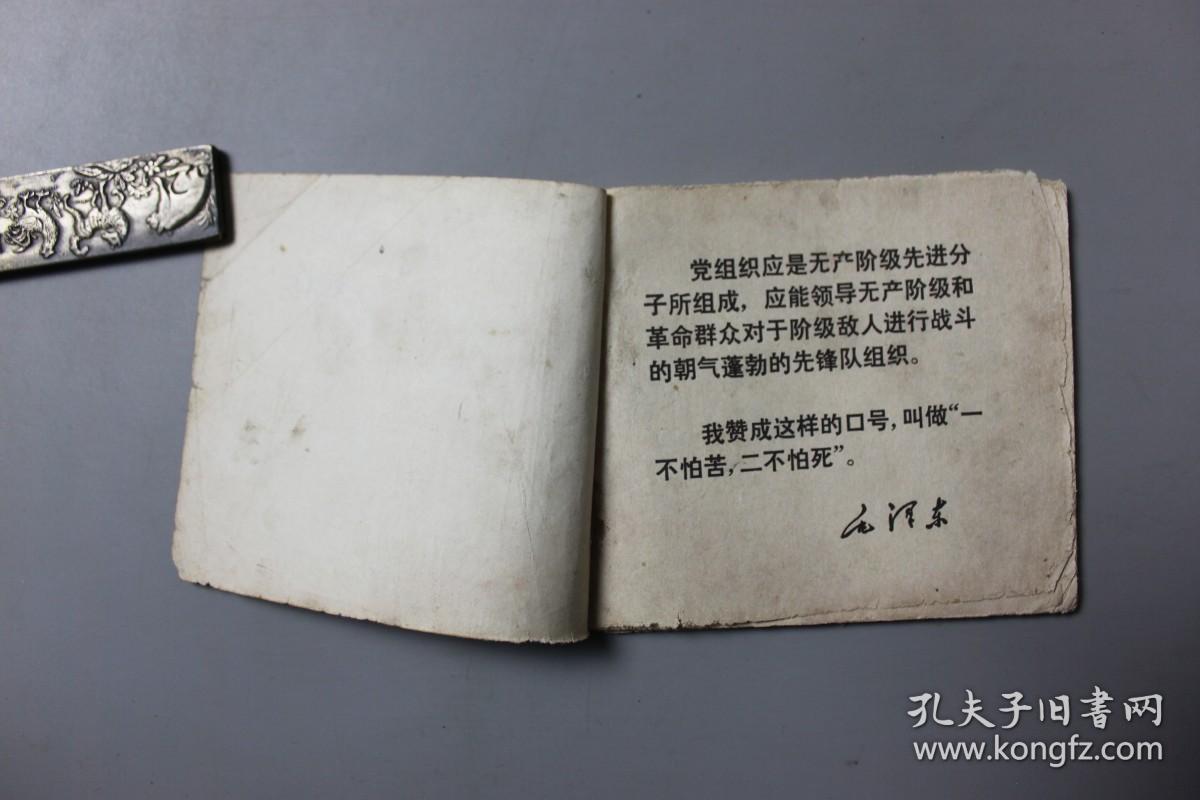 党组织应是无产阶级先进分
子所组成，应能领导无产阶级和
革命群众对于阶级敌人进行战斗
的朝气蓬勃的先锋队组织。
我赞成这样的口号，叫做“一
不怕苦，二不怕死”。
毛泽东
孔夫子旧書网
www.kongfz.com